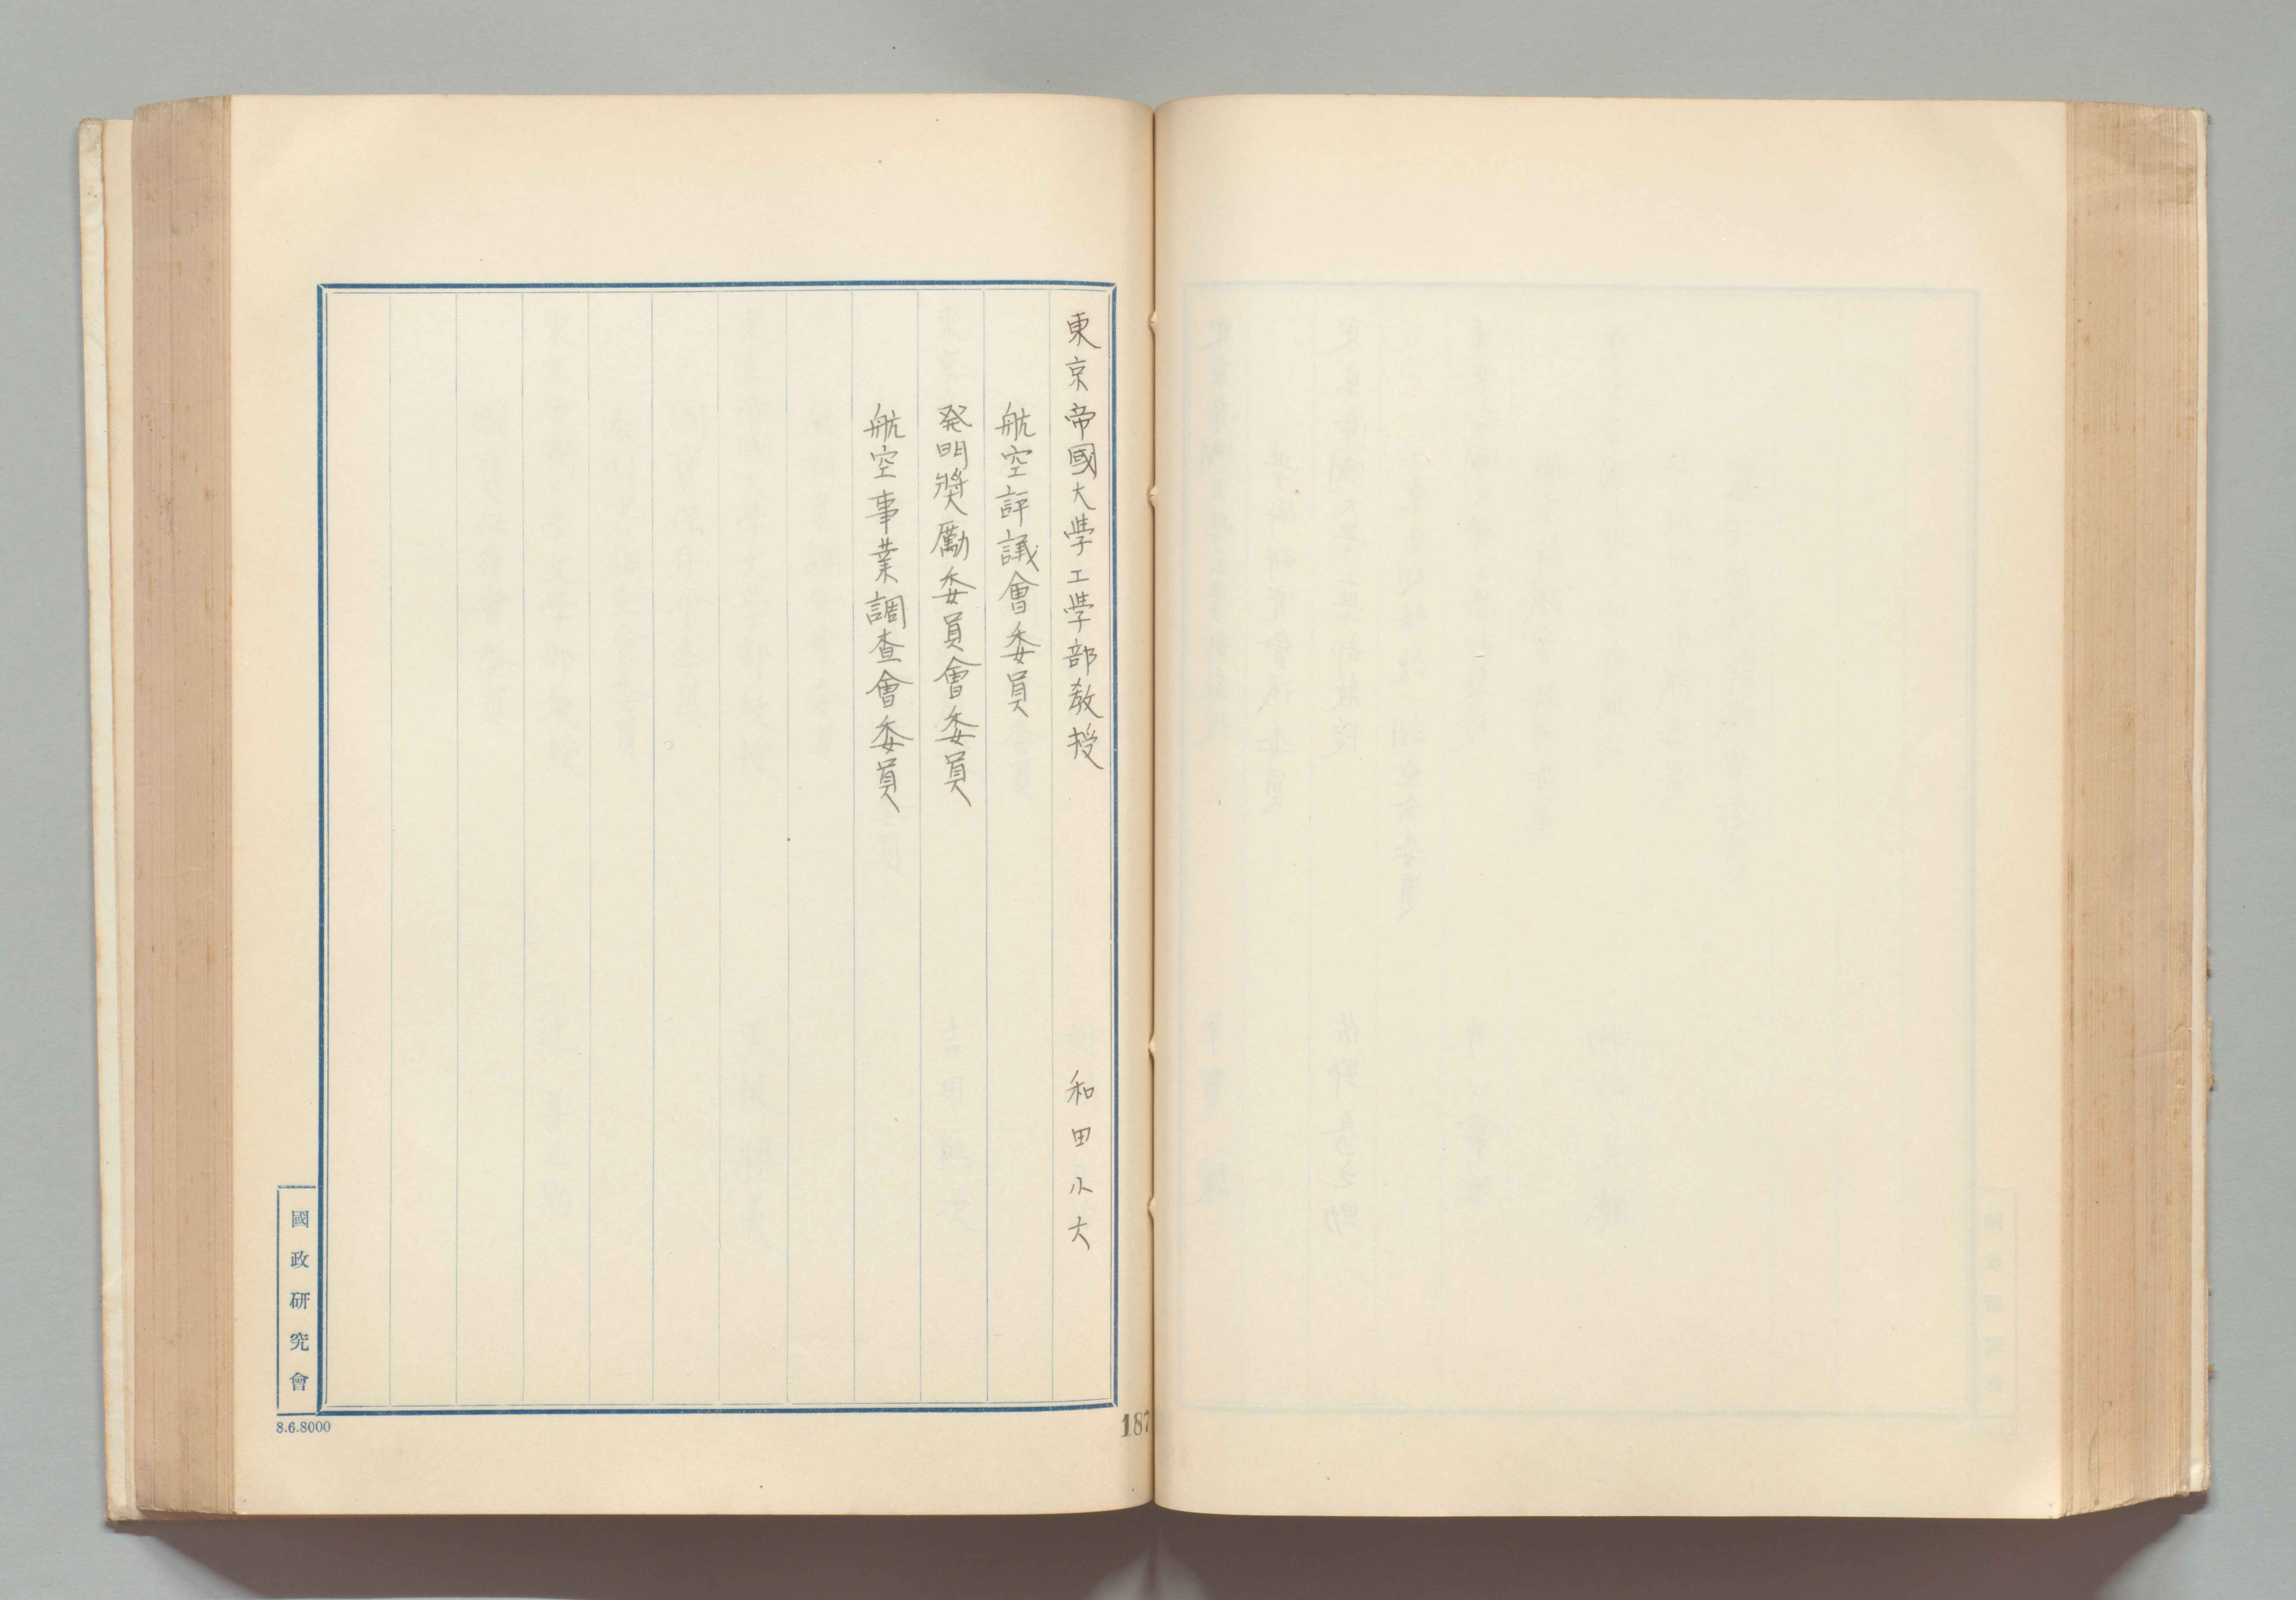 東京帝國大學工學部教授　和田小六
航空評議會委員
発明奬勵委員會委員
航空事業調査會委員
國政研究會
8.6.8000
187